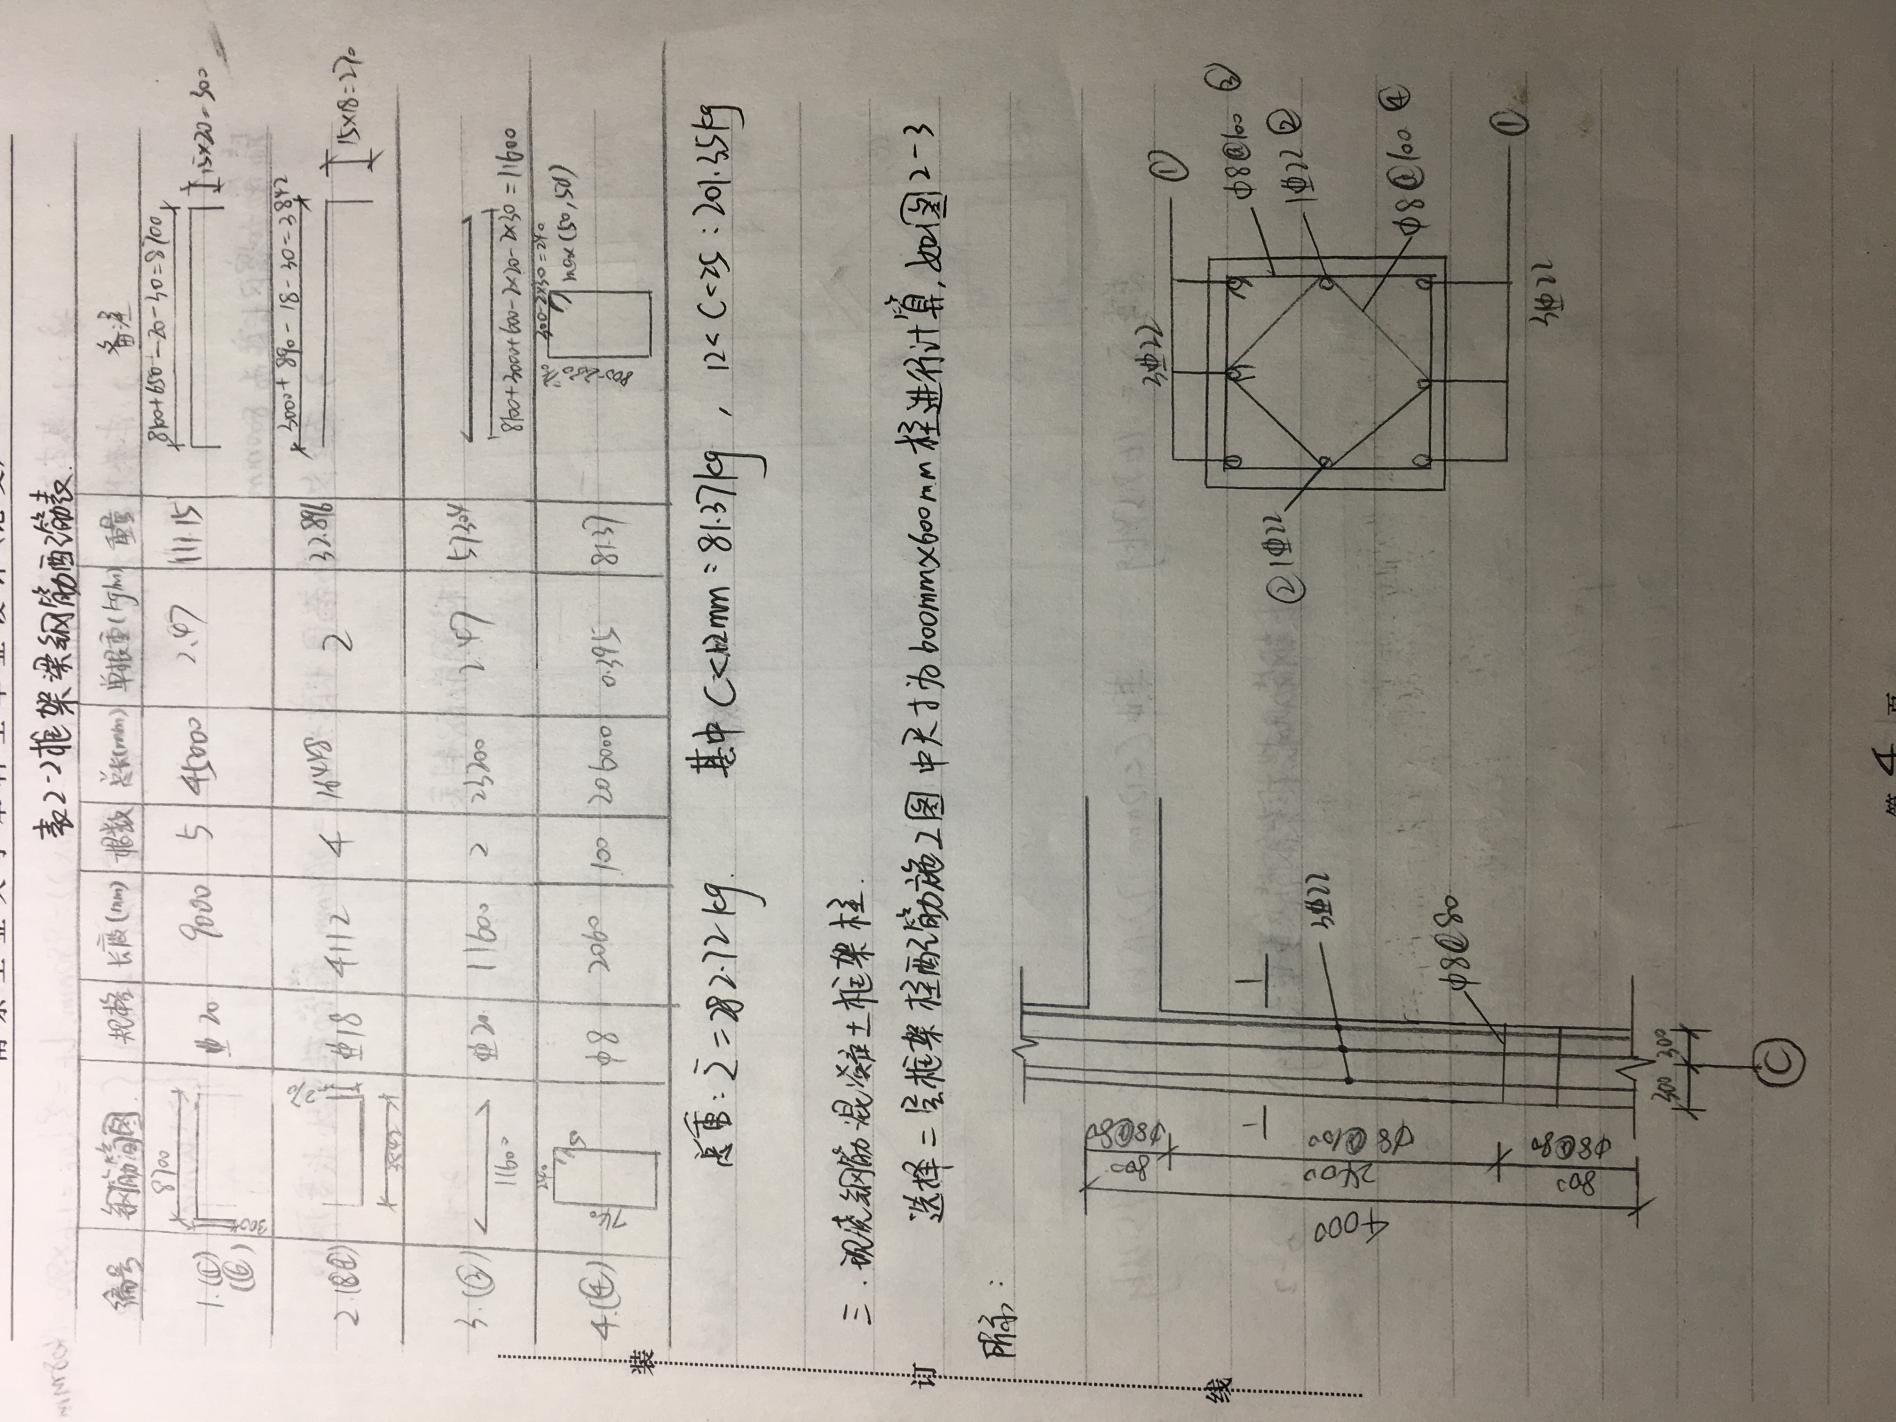 表2-2框架梁钢筋配筋表
编号 钢筋简图 规格 长度(mm) 根数 总长(mm) 单根重(kg/m) 重量 备注
8700 300 Φ20 9000 5 45000 2.47 111.15 8100+650-20-30=8700 15×20=300
270 3842 Φ18 4112 4 16448 2 32.896 3000+890-18-30=3842 15×18=270
11600 Φ20 11600 2 23200 2.47 57.304 8100+3000+600-2×20-2×30=11600
4.(④) 240 50 740 Φ8 2060 100 206000 0.395 81.37 300-2×30=240 max(50,5d)
总重:Σ=282.72kg. 其中C<12mm=81.37kg, 12<C<25:201.35kg
三.现浇钢筋混凝土框架柱.
选择二层框架柱配筋施工图中尺寸为600mm×600mm柱进行计算,如图2-3
所示:
4000
800 2400 800
Φ8@80 Φ8@100 Φ8@80
3Φ22
Φ8@80
300 300
C
3Φ22 ①
Φ8@100 ③
1Φ22 ②
Φ8@100 ④
②1Φ22
3Φ22 ①
装
订
线
第 4 页